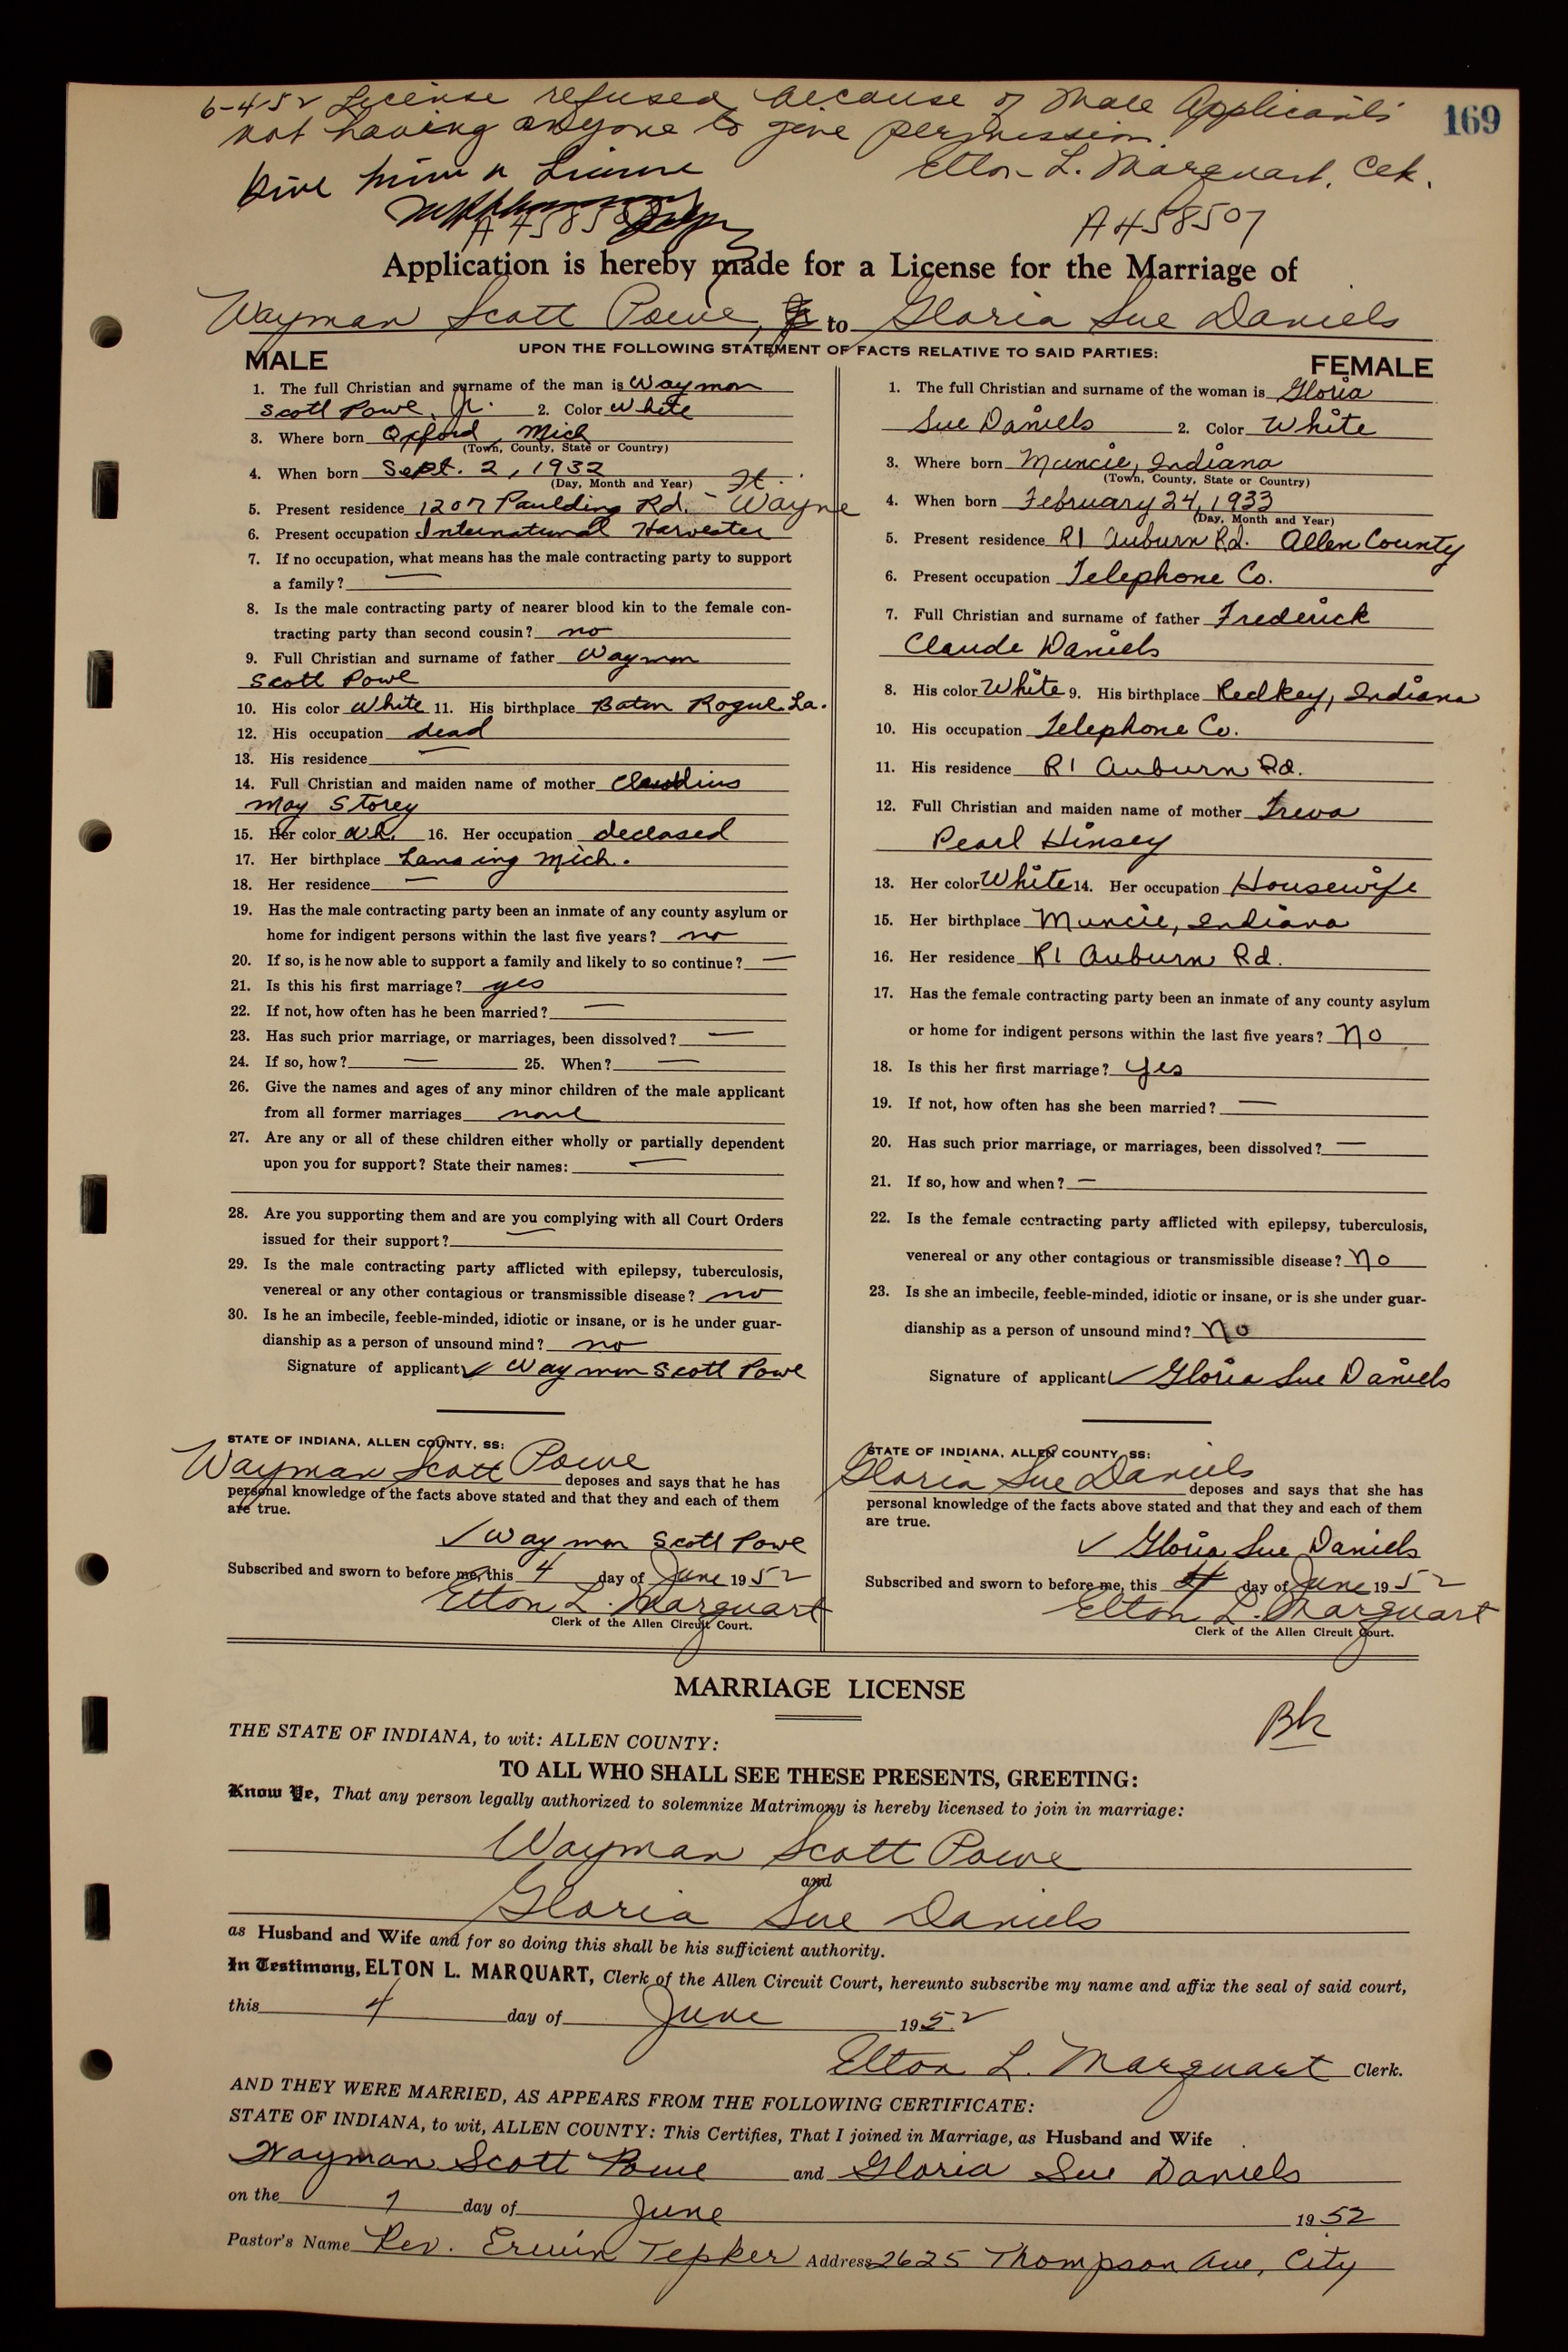 6-4-52 License refused because of Male Applicants
169
not having anyone to give permission.
Give him a License
Elton L. Marquart, Clk.
A458507
Application is hereby made for a License for the Marriage of
Wayman Scott Powe, to Gloria Sue Daniels
UPON THE FOLLOWING STATEMENT OF FACTS RELATIVE TO SAID PARTIES:
MALE
1. The full Christian and surname of the man is Waymon
Scott Powe, Jr. 2. Color White
3. Where born Oxford, Mich
(Town, County, State or Country)
4. When born Sept. 2, 1932
(Day, Month and Year)
5. Present residence 1207 Paulding Rd. - Ft. Wayne
6. Present occupation International Harvester
7. If no occupation, what means has the male contracting party to support
a family? —
8. Is the male contracting party of nearer blood kin to the female con-
tracting party than second cousin? no
9. Full Christian and surname of father Waymon
Scott Powe
10. His color White 11. His birthplace Baton Rogue La.
12. His occupation dead
13. His residence —
14. Full Christian and maiden name of mother
May Storey
15. Her color wh. 16. Her occupation deceased
17. Her birthplace Lansing Mich.
18. Her residence —
19. Has the male contracting party been an inmate of any county asylum or
home for indigent persons within the last five years? no
20. If so, is he now able to support a family and likely to so continue? —
21. Is this his first marriage? yes
22. If not, how often has he been married? —
23. Has such prior marriage, or marriages, been dissolved? —
24. If so, how? — 25. When? —
26. Give the names and ages of any minor children of the male applicant
from all former marriages none
27. Are any or all of these children either wholly or partially dependent
upon you for support? State their names: —
28. Are you supporting them and are you complying with all Court Orders
issued for their support? —
29. Is the male contracting party afflicted with epilepsy, tuberculosis,
venereal or any other contagious or transmissible disease? no
30. Is he an imbecile, feeble-minded, idiotic or insane, or is he under guar-
dianship as a person of unsound mind? no
Signature of applicant ✓ Waymon Scott Powe
STATE OF INDIANA, ALLEN COUNTY, SS:
Wayman Scott Powe deposes and says that he has
personal knowledge of the facts above stated and that they and each of them
are true.
✓ Waymon Scott Powe
Subscribed and sworn to before me, this 4 day of June 1952
Elton L. Marquart
Clerk of the Allen Circuit Court.
FEMALE
1. The full Christian and surname of the woman is Gloria
Sue Daniels 2. Color White
3. Where born Muncie, Indiana
(Town, County, State or Country)
4. When born February 24, 1933
(Day, Month and Year)
5. Present residence R1 Auburn Rd. Allen County
6. Present occupation Telephone Co.
7. Full Christian and surname of father Frederick
Claude Daniels
8. His color White 9. His birthplace Redkey, Indiana
10. His occupation Telephone Co.
11. His residence R1 Auburn Rd.
12. Full Christian and maiden name of mother Treva
Pearl Hinsey
13. Her color White 14. Her occupation Housewife
15. Her birthplace Muncie, Indiana
16. Her residence R1 Auburn Rd.
17. Has the female contracting party been an inmate of any county asylum
or home for indigent persons within the last five years? no
18. Is this her first marriage? yes
19. If not, how often has she been married? —
20. Has such prior marriage, or marriages, been dissolved? —
21. If so, how and when? —
22. Is the female contracting party afflicted with epilepsy, tuberculosis,
venereal or any other contagious or transmissible disease? no
23. Is she an imbecile, feeble-minded, idiotic or insane, or is she under guar-
dianship as a person of unsound mind? no
Signature of applicant ✓ Gloria Sue Daniels
STATE OF INDIANA, ALLEN COUNTY, SS:
Gloria Sue Daniels deposes and says that she has
personal knowledge of the facts above stated and that they and each of them
are true.
✓ Gloria Sue Daniels
Subscribed and sworn to before me, this 4 day of June 1952
Elton L. Marquart
Clerk of the Allen Circuit Court.
MARRIAGE LICENSE
Bk
THE STATE OF INDIANA, to wit: ALLEN COUNTY:
TO ALL WHO SHALL SEE THESE PRESENTS, GREETING:
Know Ye, That any person legally authorized to solemnize Matrimony is hereby licensed to join in marriage:
Wayman Scott Powe
and
Gloria Sue Daniels
as Husband and Wife and for so doing this shall be his sufficient authority.
In Testimony, ELTON L. MARQUART, Clerk of the Allen Circuit Court, hereunto subscribe my name and affix the seal of said court,
this 4 day of June 1952
Elton L. Marquart Clerk.
AND THEY WERE MARRIED, AS APPEARS FROM THE FOLLOWING CERTIFICATE:
STATE OF INDIANA, to wit, ALLEN COUNTY: This Certifies, That I joined in Marriage, as Husband and Wife
Wayman Scott Powe and Gloria Sue Daniels
on the 7 day of June 1952
Pastor's Name Rev. Erwin Tepker Address 2625 Thompson Ave, City